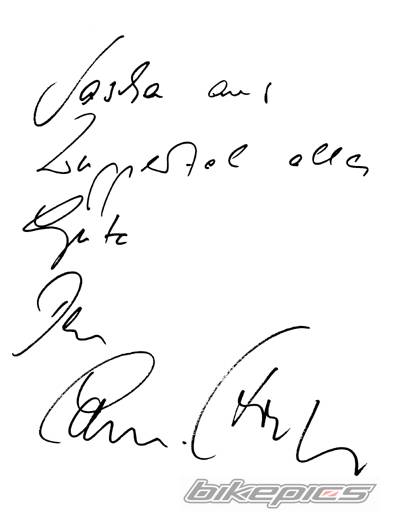 Sascha aus
Wuppertal alles
Gute
Dein
bikepics